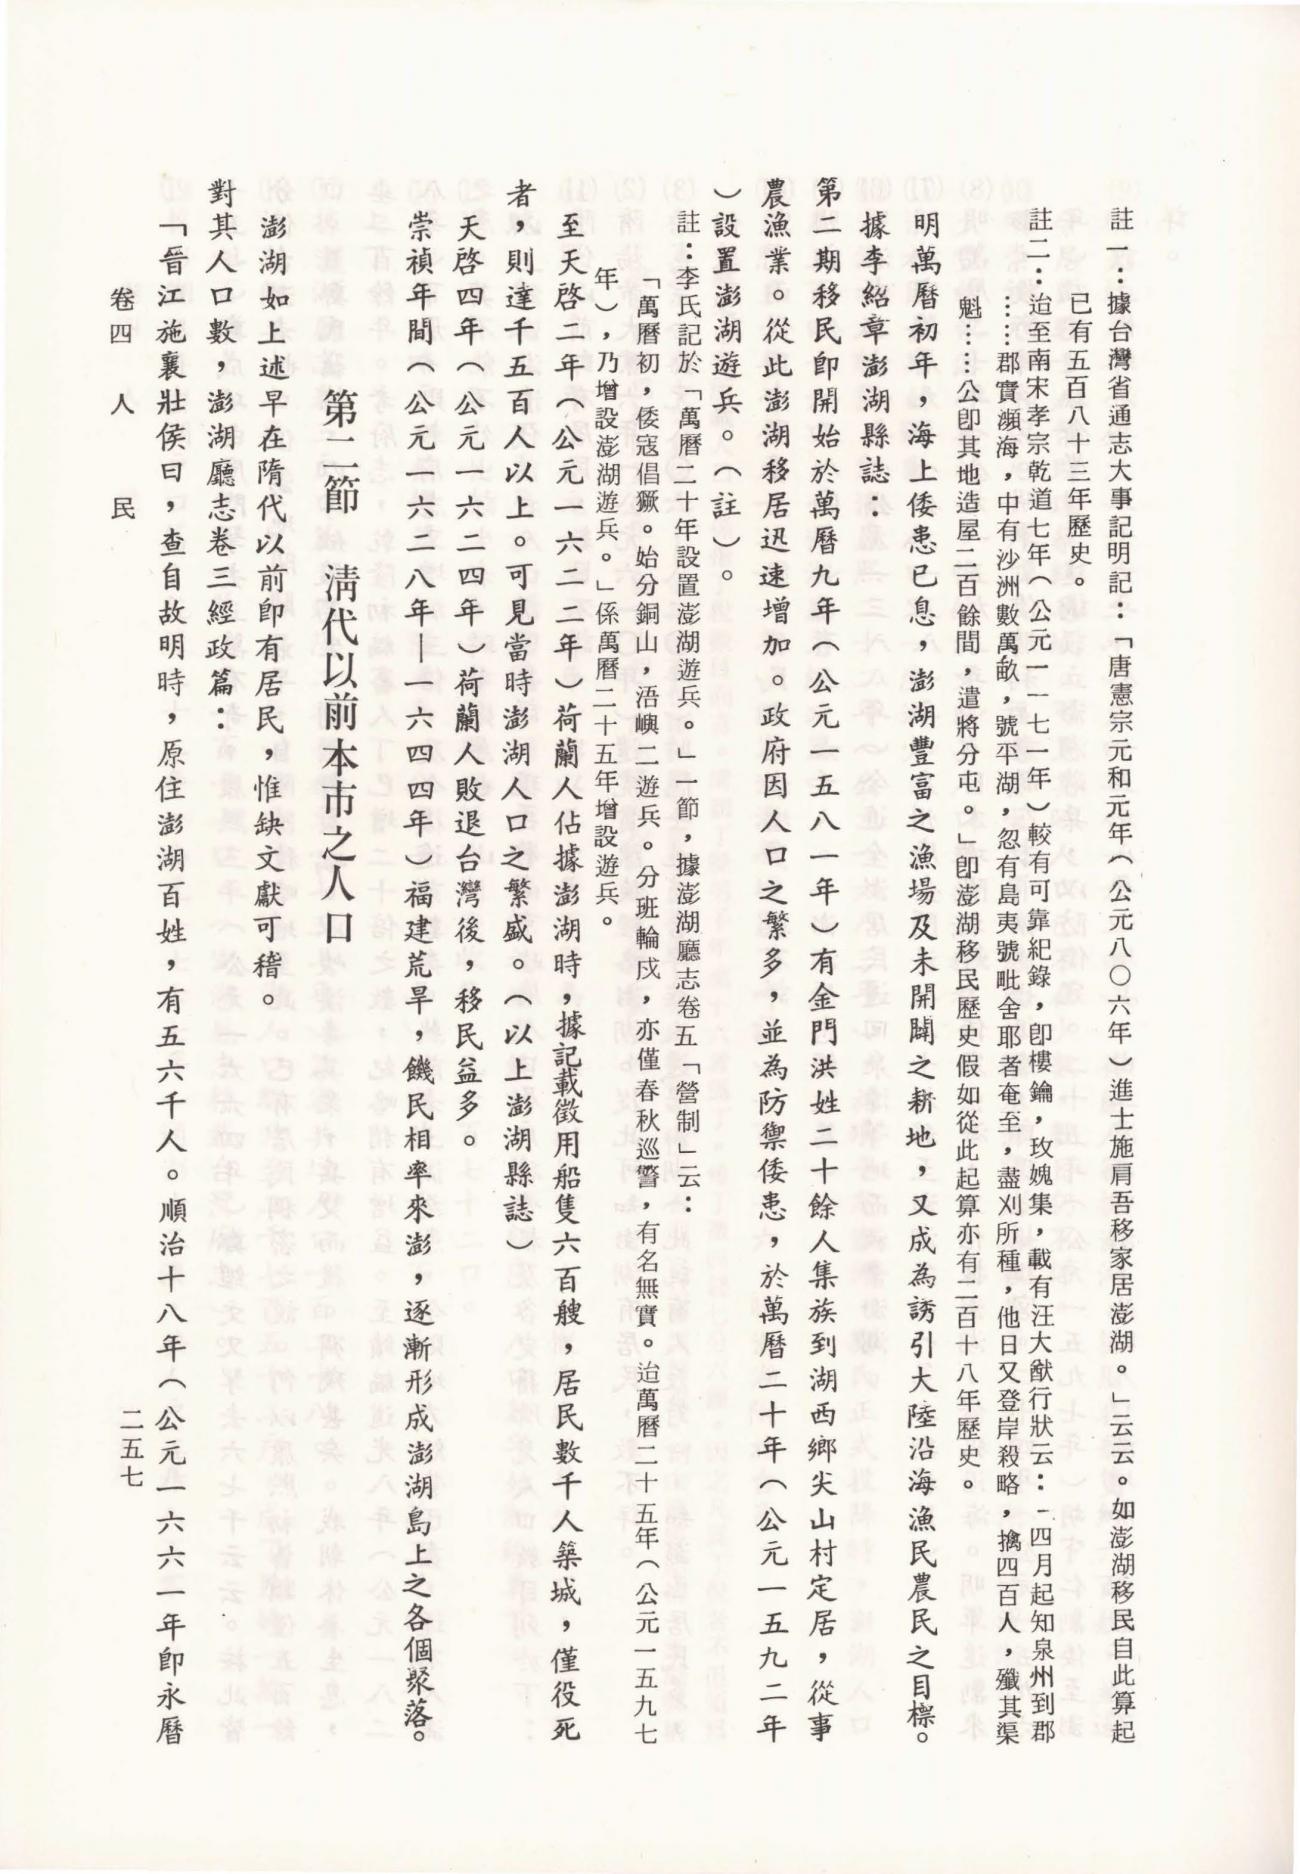 註一：據台灣省通志大事記明記：「唐憲宗元和元年（公元八〇六年）進士施肩吾移家居澎湖。」云云。如澎湖移民自此算起
已有五百八十三年歷史。
註二：迨至南宋孝宗乾道七年（公元一一七一年）較有可靠紀錄，卽樓鑰，玫媿集，載有汪大猷行狀云：「四月起知泉州到郡
……郡實瀕海，中有沙洲數萬畝，號平湖，忽有島夷號毗舍耶者奄至，盡刈所種，他日又登岸殺略，擒四百人，殲其渠
魁……公卽其地造屋二百餘間，遣將分屯。」卽澎湖移民歷史假如從此起算亦有二百十八年歷史。
明萬曆初年，海上倭患已息，澎湖豐富之漁場及未開闢之耕地，又成為誘引大陸沿海漁民農民之目標。
據李紹章澎湖縣誌：
第二期移民卽開始於萬曆九年（公元一五八一年）有金門洪姓二十餘人集族到湖西鄉尖山村定居，從事
農漁業。從此澎湖移居迅速增加。政府因人口之繁多，並為防禦倭患，於萬曆二十年（公元一五九二年
）設置澎湖遊兵。（註）。
註：李氏記於「萬曆二十年設置澎湖遊兵。」一節，據澎湖廳志卷五「營制」云：
「萬曆初，倭寇倡獗。始分銅山，浯嶼二遊兵。分班輪戍，亦僅春秋巡警，有名無實。迨萬曆二十五年（公元一五九七
年），乃增設澎湖遊兵。」係萬曆二十五年增設遊兵。
至天啓二年（公元一六二二年）荷蘭人佔據澎湖時，據記載徵用船隻六百艘，居民數千人築城，僅役死
者，則達千五百人以上。可見當時澎湖人口之繁盛。（以上澎湖縣誌）
天啓四年（公元一六二四年）荷蘭人敗退台灣後，移民益多。
崇禎年間（公元一六二八年—一六四四年）福建荒旱，饑民相率來澎，逐漸形成澎湖島上之各個聚落。
第二節 清代以前本市之人口
澎湖如上述早在隋代以前卽有居民，惟缺文獻可稽。
對其人口數，澎湖廳志卷三經政篇：
「晉江施襄壯侯曰，查自故明時，原住澎湖百姓，有五六千人。順治十八年（公元一六六一年卽永曆
卷四 人民
二五七